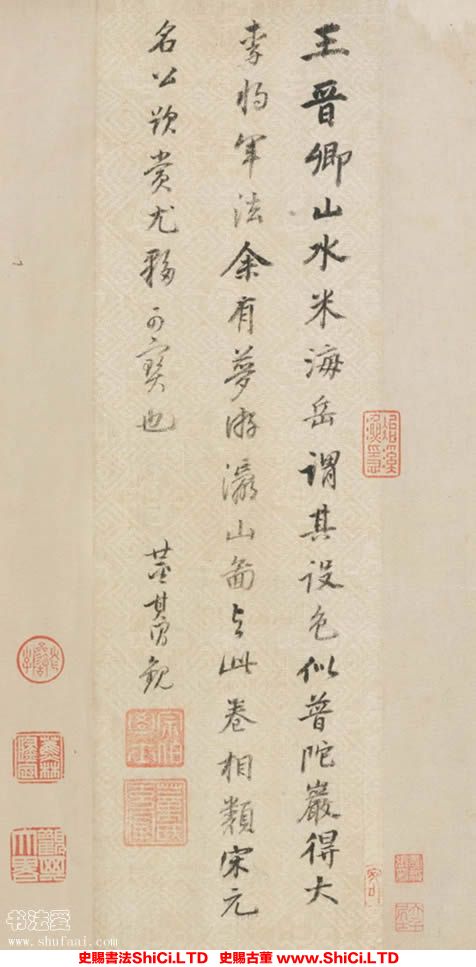 王晉卿山水米海岳謂其设色似普陀巖得大
李將軍法余有夢游瀛山啚与此卷相類宋元
名公題赏尤夥可寶也
董其昌觀
书法爱
www.shufaai.com
史赐書法ShiCi.LTD 史赐古董 www.ShiCi.LTD